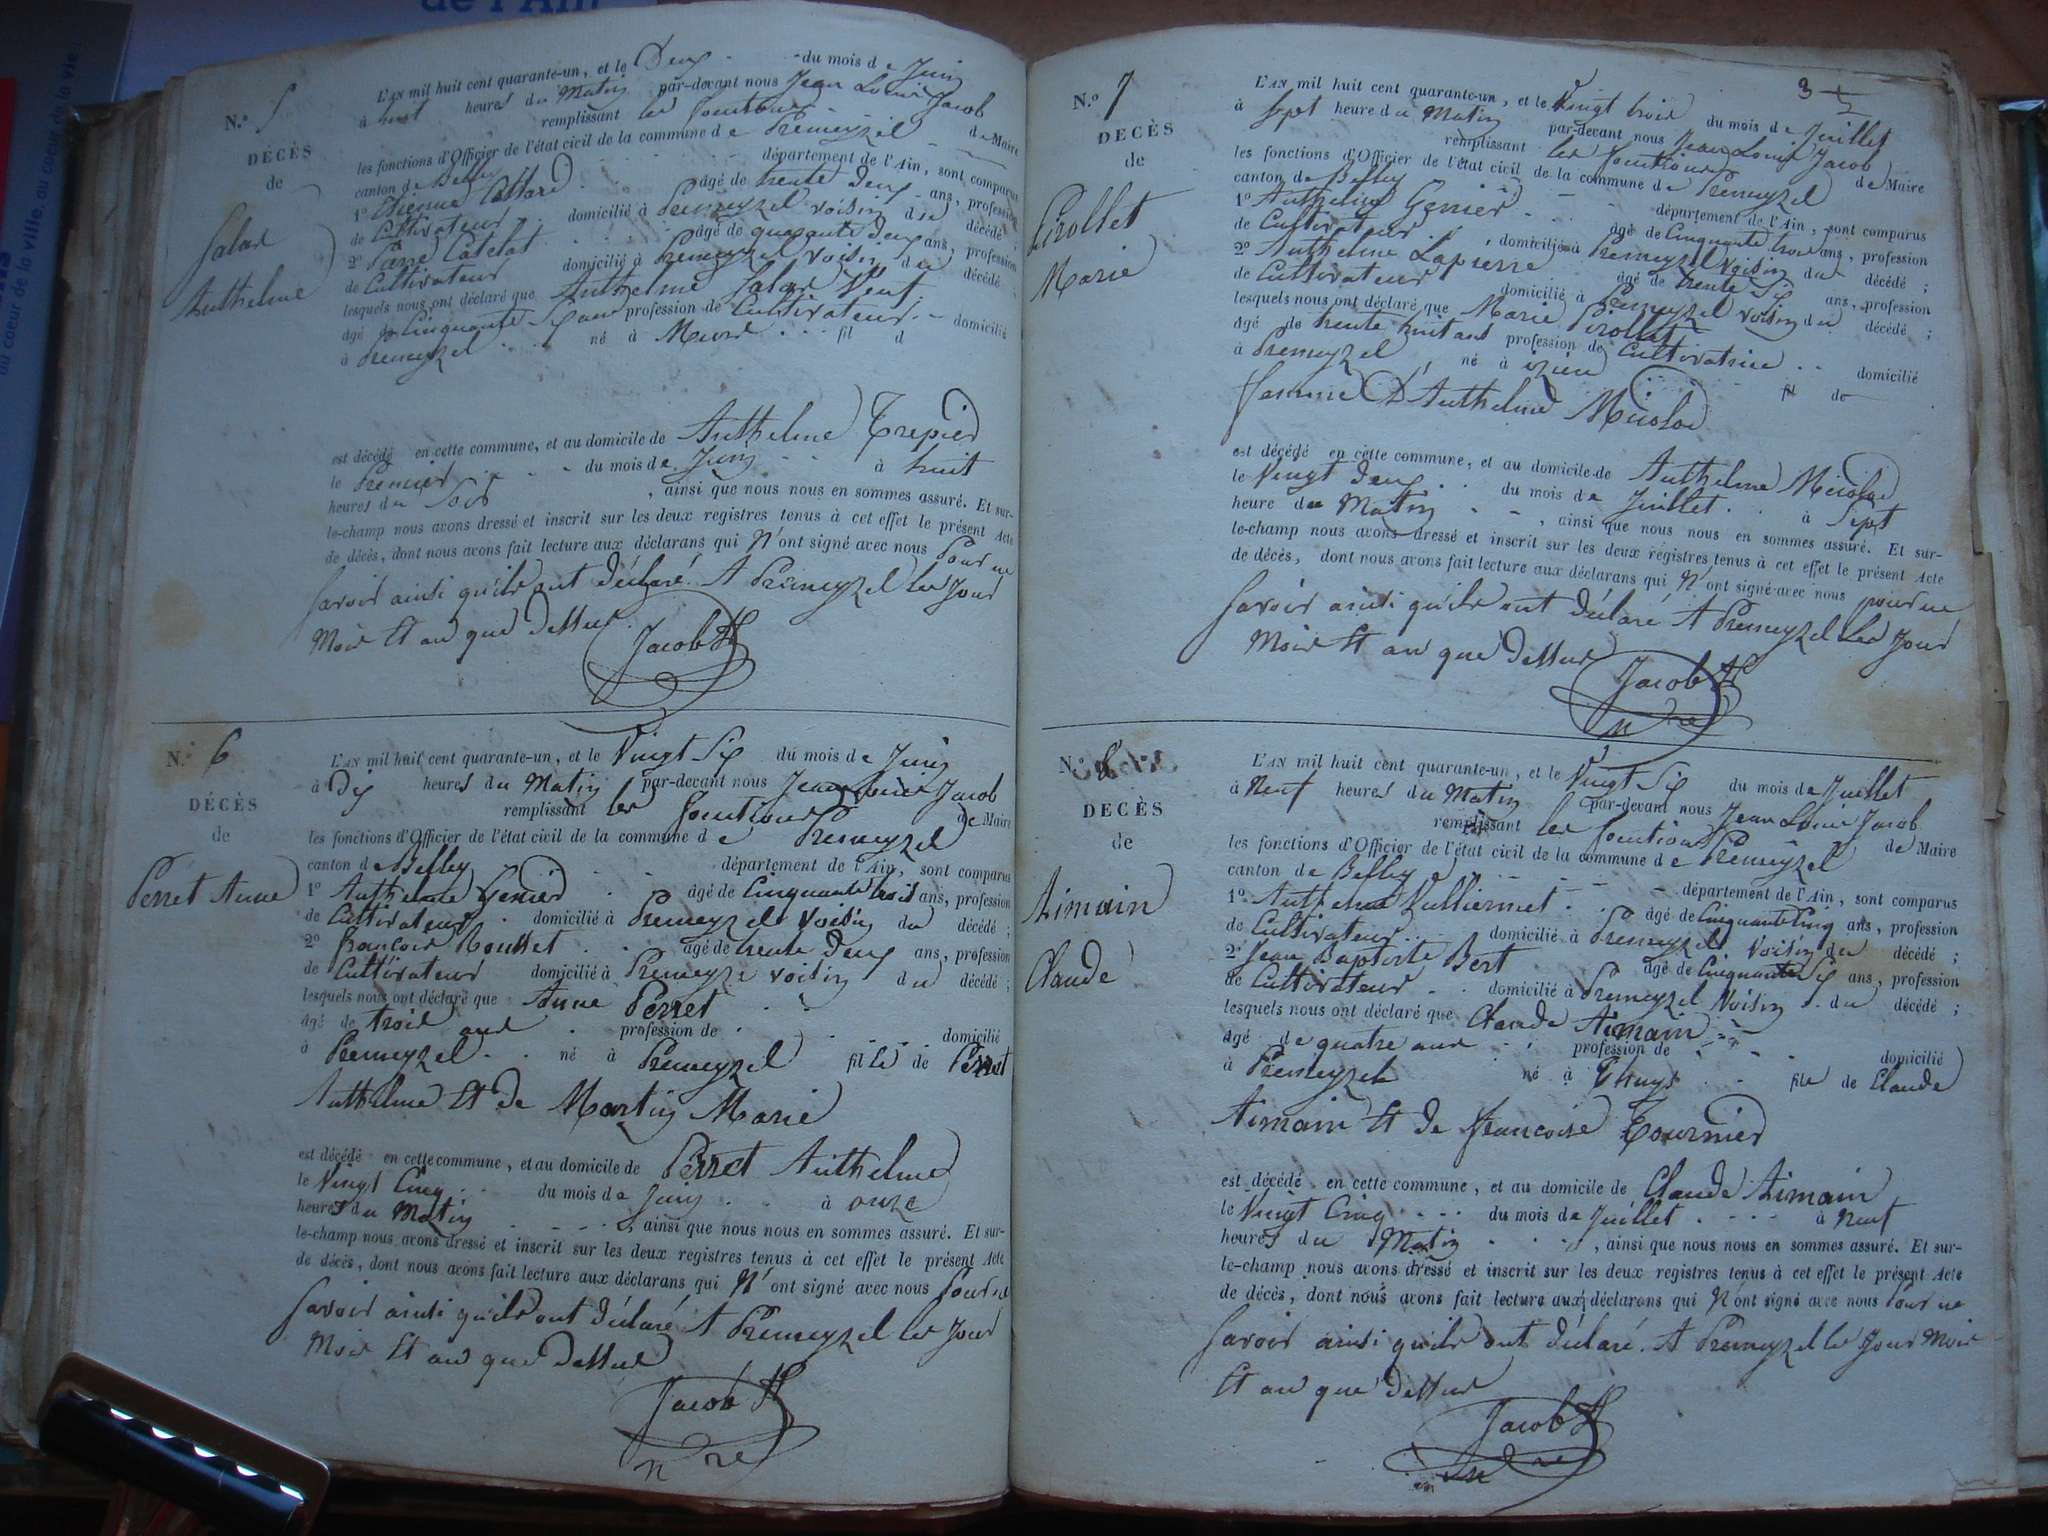 de l'Ain
au coeur de la ville, au coeur de la vie
N.° 5
DÉCÈS
de
Salar
Anthelme
L'AN mil huit cent quarante-un, et le Deux du mois de Juin
à huit heures du Matin par-devant nous Jean Louis Jacob
remplissant les fonctions de Maire
les fonctions d'Officier de l'état civil de la commune de Premeyzel
canton de Belley département de l'Ain, sont comparus
1° Etienne Collard âgé de trente deux ans, profession
de Cultivateur domicilié à Premeyzel voisin du décédé ;
2° Pierre Catelat âgé de quarante deux ans, profession
de Cultivateur domicilié à Premeyzel voisin du décédé ;
lesquels nous ont déclaré que Anthelme Salar Veuf
âgé de Cinquante Six ans profession de Cultivateur domicilié
à Premeyzel né à fil d
est décédé en cette commune, et au domicile de Anthelme Trepier
le Premier du mois de Juin à huit
heures du Soir , ainsi que nous nous en sommes assuré. Et sur-
le-champ nous avons dressé et inscrit sur les deux registres tenus à cet effet le présent Acte
de décès, dont nous avons fait lecture aux déclarans qui N'ont signé avec nous Pour ne
Savoir ainsi qu'ils ont déclaré. A Premeyzel les Jour
Mois Et an que dessus
Jacob
N.° 6
DÉCÈS
de
Perret Anne
L'AN mil huit cent quarante-un, et le Vingt Six du mois de Juin
à Dix heures du Matin par-devant nous Jean Louis Jacob
remplissant les fonctions de Maire
les fonctions d'Officier de l'état civil de la commune de Premeyzel
canton de Belley département de l'Ain, sont comparus
1° Anthelme Genier âgé de Cinquante trois ans, profession
de Cultivateur domicilié à Premeyzel Voisin du décédé ;
2° françois Rousset âgé de trente deux ans, profession
de Cultivateur domicilié à Premeyzel voisin du décédé ;
lesquels nous ont déclaré que Anne Perret
âgé de trois ans profession de domicilié
à Premeyzel né à Premeyzel fille de Perret
Anthelme Et de Martin Marie
est décédé en cette commune, et au domicile de Perret Anthelme
le Vingt Cinq du mois de Juin à onze
heures du Matin , ainsi que nous nous en sommes assuré. Et sur-
le-champ nous avons dressé et inscrit sur les deux registres tenus à cet effet le présent Acte
de décès, dont nous avons fait lecture aux déclarans qui N'ont signé avec nous Pour ne
Savoir ainsi qu'ils ont déclaré A Premeyzel les Jour
Mois Et an que Dessus
Jacob
3
N.° 7
DÉCÈS
de
Pirollet
Marie
L'AN mil huit cent quarante-un, et le Vingt trois du mois de Juillet
à Sept heure du Matin par-devant nous Jean Louis Jacob
remplissant les fonctions de Maire
les fonctions d'Officier de l'état civil de la commune de Premeyzel
canton de Belley département de l'Ain, sont comparus
1° Anthelme Genier âgé de Cinquante trois ans, profession
de Cultivateur domicilié à Premeyzel Voisin du décédé ;
2° Anthelme Lapierre âgé de trente Six ans, profession
de Cultivateur domicilié à Premeyzel voisin du décédé ;
lesquels nous ont déclaré que Marie Pirollet
âgé de trente huit ans profession de Cultivatrice domicilié
à Premeyzel né à izieu fil de
femme D'Anthelme Micolod
est décédé en cette commune, et au domicile de Anthelme Micolod
le Vingt deux du mois de Juillet à Sept
heure du Matin , ainsi que nous nous en sommes assuré. Et sur-
le-champ nous avons dressé et inscrit sur les deux registres tenus à cet effet le présent Acte
de décès, dont nous avons fait lecture aux déclarans qui N'ont signé avec nous pour ne
Savoir ainsi qu'ils ont déclaré A Premeyzel les Jour
Mois Et an que Dessus
Jacob
N.° 8
DÉCÈS
de
Aimain
Claude
L'AN mil huit cent quarante-un, et le Vingt Six du mois de Juillet
à Neuf heures du Matin par-devant nous Jean Louis Jacob
remplissant les fonctions de Maire
les fonctions d'Officier de l'état civil de la commune de Premeyzel
canton de Belley département de l'Ain, sont comparus
1° Anthelme Vulliermet âgé de Cinquante Cinq ans, profession
de Cultivateur domicilié à Premeyzel Voisin du décédé ;
2° Jean Baptiste Bert âgé de Cinquante Six ans, profession
de Cultivateur domicilié à Premeyzel Voisin du décédé ;
lesquels nous ont déclaré que Claude Aimain
âgé de quatre ans profession de domicilié
à Premeyzel né à Thuys fils de Claude
Aimain Et de francoise Tournier
est décédé en cette commune, et au domicile de Claude Aimain
le Vingt Cinq du mois de Juillet à Neuf
heures du Matin , ainsi que nous nous en sommes assuré. Et sur-
le-champ nous avons dressé et inscrit sur les deux registres tenus à cet effet le présent Acte
de décès, dont nous avons fait lecture aux déclarans qui N'ont signé avec nous Pour ne
Savoir ainsi qu'ils ont déclaré. A Premeyzel les Jour Mois
Et an que Dessus
Jacob